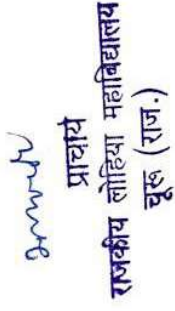 प्राचार्य
राजकीय लोहिया महाविद्यालय
चूरू (राज.)